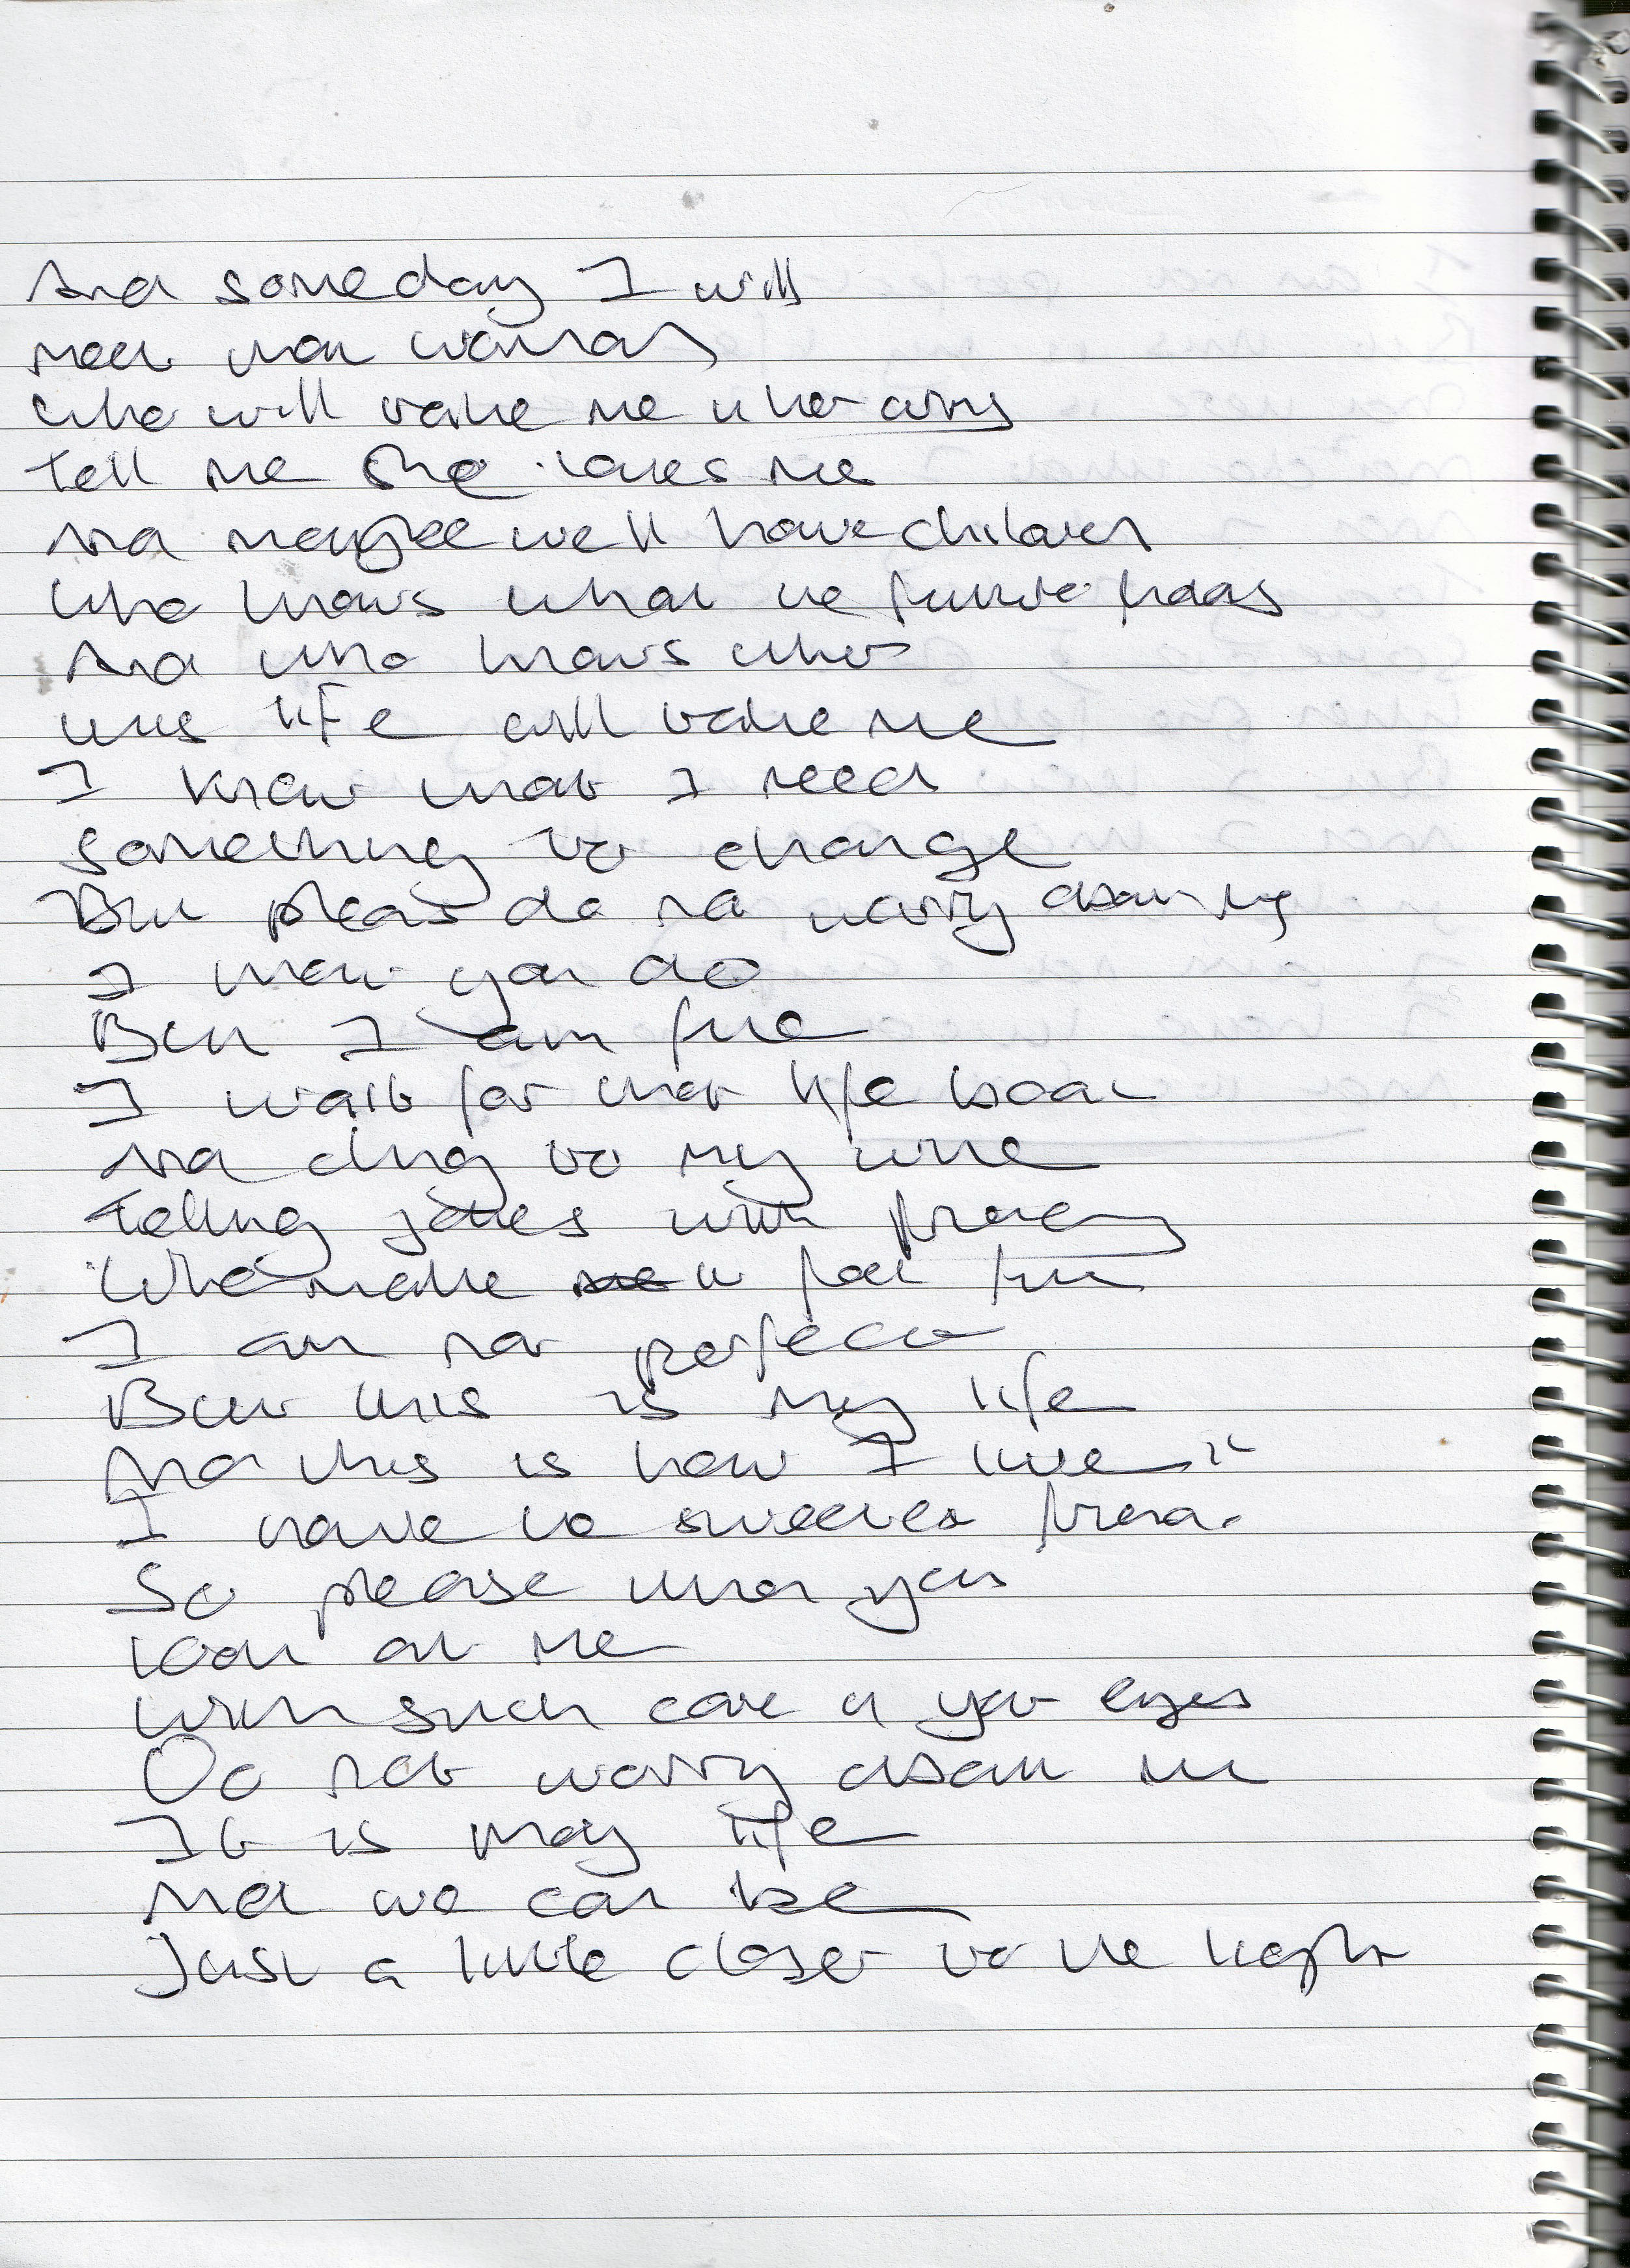 And someday I will
meet that woman
who will take me in her arms
tell me she loves me
And maybee we'll have children
who knows what the future holds
And who knows where
this life will take me
I know that I need
something to change
But pleas do not worry about me
I know you do
But I am fine
I wait for that life boat
And cling to my wine
Telling jokes with friends
Who make it feel fun
I am not perfect
But this is my life
And this is how I live it
I have the sweetest friend.
So please when you
look at me
With such care in your eyes
Do not worry about me
It is my life
And we can be
Just a little closer to the light